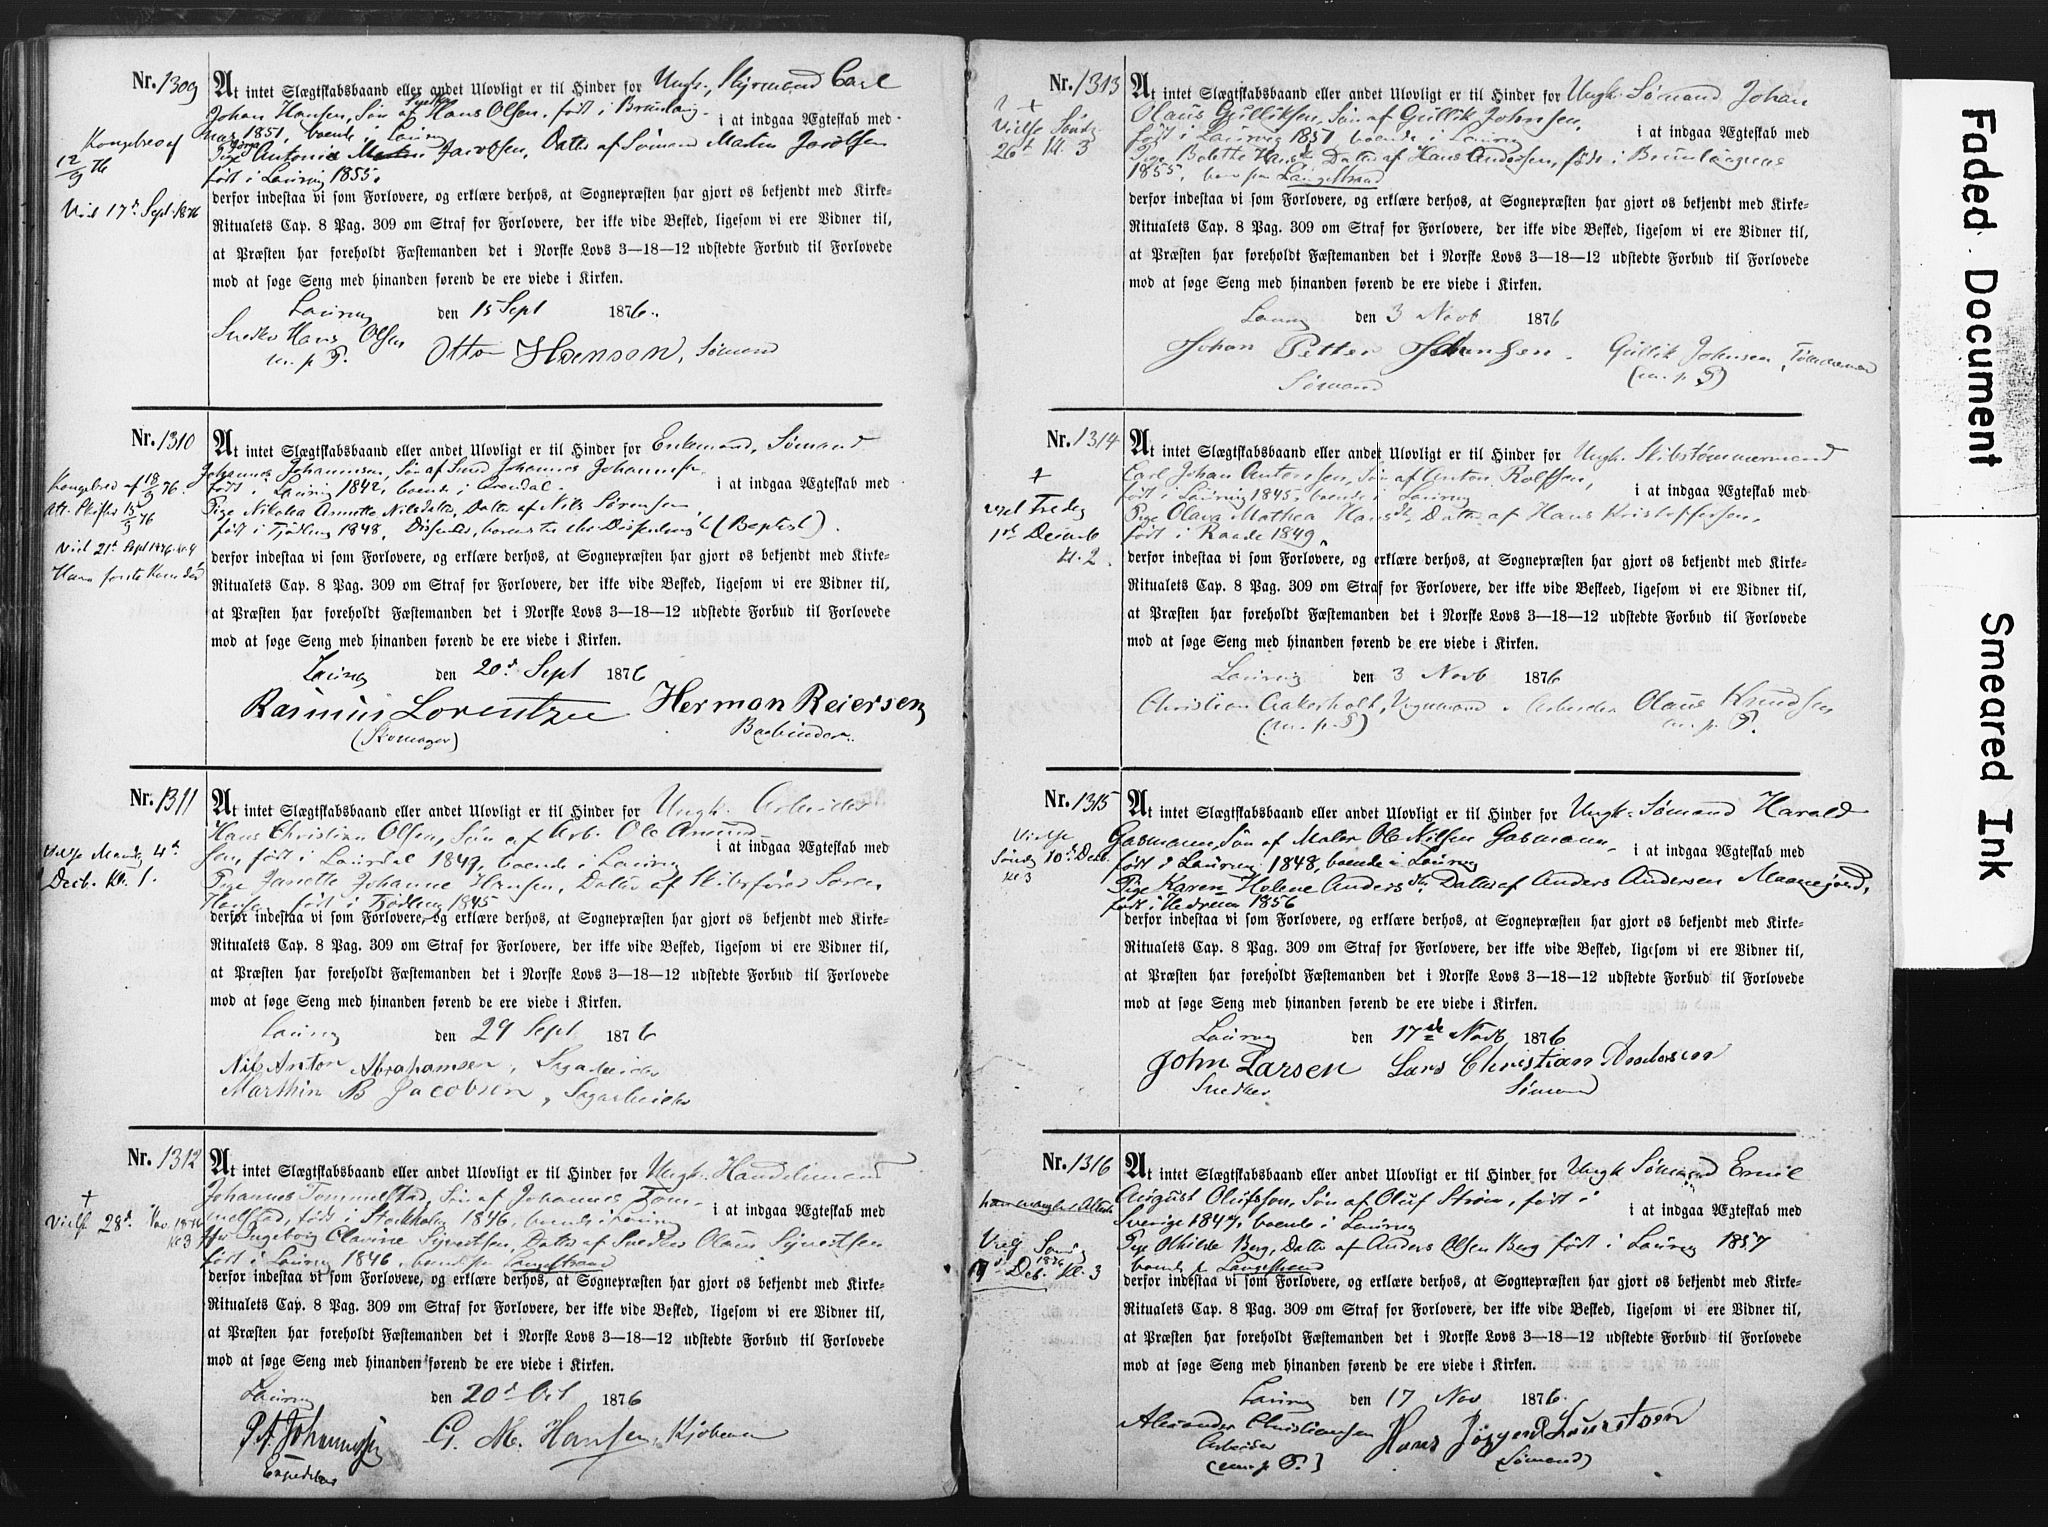 Nr. 1309
At intet Slægtskabsbaand eller andet Ulovligt er til Hinder for Ungk. Styrmand Carl
Johan Hansen, Søn af Snedker Hans Olsen, født i Brunla-
1851, boende i Laurvig i at indgaa Ægteskab med
Pige Antonie Jacobsen, Datter af Sømand Martin Jacobsen
født i Laurvig 1855.
Kongebrev af
12/9 76
Viet 17d Sept. 1876
derfor indestaa vi som Forlovere, og erklære derhos, at Sognepræsten har gjort os bekjendt med Kirke-
Ritualets Cap. 8 Pag. 309 om Straf for Forlovere, der ikke vide Besked, ligesom vi ere Vidner til,
at Præsten har foreholdt Fæstemanden det i Norske Lovs 3—18—12 udstedte Forbud til Forlovede
mod at søge Seng med hinanden førend de ere viede i Kirken.
Laurvig den 15 Sept 1876.
Snedker Hans Olsen Otto Hansen, Sømand
m. p. P.
Nr. 1310
At intet Slægtskabsbaand eller andet Ulovligt er til Hinder for Enkemand, Sømand
Johannes Johannesen, Søn af Johannes Johannesen
født i Laurvig 1842, boende i Arendal. i at indgaa Ægteskab med
Pige Nikolea Annette Nilsdatter, Datter af Nils Sørensen,
født i Tjødling 1848, Dissenter, (Baptist).
Kongebrev af 18/9 76.
Att. Skifter 15/9 76
Viet 21d Sept 1876 kl. 4
Hans første Kone død
derfor indestaa vi som Forlovere, og erklære derhos, at Sognepræsten har gjort os bekjendt med Kirke-
Ritualets Cap. 8 Pag. 309 om Straf for Forlovere, der ikke vide Besked, ligesom vi ere Vidner til,
at Præsten har foreholdt Fæstemanden det i Norske Lovs 3—18—12 udstedte Forbud til Forlovede
mod at søge Seng med hinanden førend de ere viede i Kirken.
Laurvig den 20d Sept 1876
Rasmus Lorentzen Herman Reiersen
(Skomager) Bogbinder.
Nr. 1311
At intet Slægtskabsbaand eller andet Ulovligt er til Hinder for Ungk. Arbeider
Hans Christian Olsen, Søn af Arb. Ole Amund-
sen, født i Laurdal 1849, boende i Laurvig i at indgaa Ægteskab med
Pige Janette Johanne Hansen, Datter af Skibsfører Søren
Hansen født i Tjødling 1845
Vielse Mandag 4de
Decb. Kl. 1.
derfor indestaa vi som Forlovere, og erklære derhos, at Sognepræsten har gjort os bekjendt med Kirke-
Ritualets Cap. 8 Pag. 309 om Straf for Forlovere, der ikke vide Besked, ligesom vi ere Vidner til,
at Præsten har foreholdt Fæstemanden det i Norske Lovs 3—18—12 udstedte Forbud til Forlovede
mod at søge Seng med hinanden førend de ere viede i Kirken.
Laurvig den 29 Sept 1876
Nils Anton Abrahamsen, Sagarbeider
Marthin B Jacobsen, Sagarbeider
Nr. 1312
At intet Slægtskabsbaand eller andet Ulovligt er til Hinder for Ungk. Handelsmand
Johannes Tommelstad, Søn af Johannes Tom-
melstad, født i Stockholm 1846, boende i Laurvig i at indgaa Ægteskab med
Ingeborg Olavine Syvertsen, Datter af Snedker Olaus Syvertsen
født i Laurvig 1846, boende paa Langestrand
+
Vielse 28d Nov. 1876
Kl 3
derfor indestaa vi som Forlovere, og erklære derhos, at Sognepræsten har gjort os bekjendt med Kirke-
Ritualets Cap. 8 Pag. 309 om Straf for Forlovere, der ikke vide Besked, ligesom vi ere Vidner til,
at Præsten har foreholdt Fæstemanden det i Norske Lovs 3—18—12 udstedte Forbud til Forlovede
mod at søge Seng med hinanden førend de ere viede i Kirken.
Laurvig den 20d Oct 1876
P. A. Johannessen G. M. Hansen, Kjøbmand
Expeditør
Nr. 1313
At intet Slægtskabsbaand eller andet Ulovligt er til Hinder for Ungk. Sømand Johan
Olaus Gulliksen, Søn af Gullik Johnsen,
født i Laurvig 1851 boende i Laurvig i at indgaa Ægteskab med
Pige Bolette Hansdr Datter af Hans Andersen, født i Brunlaugnes
1855, boende paa Langestrand
+
Vielse Søndag
26de kl. 3
derfor indestaa vi som Forlovere, og erklære derhos, at Sognepræsten har gjort os bekjendt med Kirke-
Ritualets Cap. 8 Pag. 309 om Straf for Forlovere, der ikke vide Besked, ligesom vi ere Vidner til,
at Præsten har foreholdt Fæstemanden det i Norske Lovs 3—18—12 udstedte Forbud til Forlovede
mod at søge Seng med hinanden førend de ere viede i Kirken.
Laurvig den 3 Novb 1876
Johan Petter Johnsen. Gullik Johnsen, Tømmermand
Sømand (m. p. P)
Nr. 1314
At intet Slægtskabsbaand eller andet Ulovligt er til Hinder for Ungk. Skibstømmermand
Carl Johan Antonsen, Søn af Anton Rolfsen,
født i Laurvig 1845, boende i Laurvig i at indgaa Ægteskab med
Pige Olava Mathea Hansdr, Datter af Hans Kristoffersen,
født i Raade 1849.
+
Viet Fredag
1ste Decemb
kl. 2.
derfor indestaa vi som Forlovere, og erklære derhos, at Sognepræsten har gjort os bekjendt med Kirke-
Ritualets Cap. 8 Pag. 309 om Straf for Forlovere, der ikke vide Beskeed, ligesom vi ere Vidner til,
at Præsten har foreholdt Fæstemanden det i Norske Lovs 3—18—12 udstedte Forbud til Forlovede
mod at søge Seng med hinanden førend de ere viede i Kirken.
Laurvig den 3 Novb 1876
Christian Aakerholt, Vognmand. Arbeider Olaus Knudsen
(m. p. P) m. p. P.
Nr. 1315
At intet Slægtskabsbaand eller andet Ulovligt er til Hinder for Ungk. Sømand Harald
Gasmann, Søn af Maler Ole Nilsen Gasmann,
født i Laurvig 1848, boende i Laurvig i at indgaa Ægteskab med
Pige Karen Helene Andersdr, Datter af Anders Andersen Maanejord,
født i Hedrum 1856
Vielse
Søndag 10de Decb.
kl 3
derfor indestaa vi som Forlovere, og erklære derhos, at Sognepræsten har gjort os bekjendt med Kirke-
Ritualets Cap. 8 Pag. 309 om Straf for Forlovere, der ikke vide Besked, ligesom vi ere Vidner til,
at Præsten har foreholdt Fæstemanden det i Norske Lovs 3—18—12 udstedte Forbud til Forlovede
mod at søge Seng med hinanden førend de ere viede i Kirken.
Laurvig den 17de Novb 1876
John Larsen Lars Christian Andersen
Snedker Sømand
Nr. 1316
At intet Slægtskabsbaand eller andet Ulovligt er til Hinder for Ungk Sømand Emil
August Olufsson, Søn af Oluf Strøm, født i
Sverige 1847, boende i Laurvig i at indgaa Ægteskab med
Pige Othilde Berg, Datter af Anders Olsen Berg født i Laurvig 1857
boende p Langestrand
han mangler Attest
Vielse Søndag
1876
Dec. Kl. 3
derfor indestaa vi som Forlovere, og erklære derhos, at Sognepræsten har gjort os bekjendt med Kirke-
Ritualets Cap. 8 Pag. 309 om Straf for Forlovere, der ikke vide Besked, ligesom vi ere Vidner til,
at Præsten har foreholdt Fæstemanden det i Norske Lovs 3—18—12 udstedte Forbud til Forlovede
mod at søge Seng med hinanden førend de ere viede i Kirken.
Laurvig den 17 Nov 1876.
Alexander Christiansen Hans Jørgen Lauritsen
Arbeider (Sømand)
(m. p. P.)
Faded Document
Smeared Ink